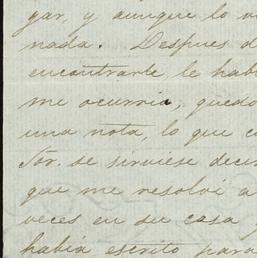 gar, y aunque lo
nada. Despues d
encontrarle le habi
me ocurria, quedo
una nota, lo que
Sor. se sirviese decir
que me resolví a
veces en su casa
había escrito para